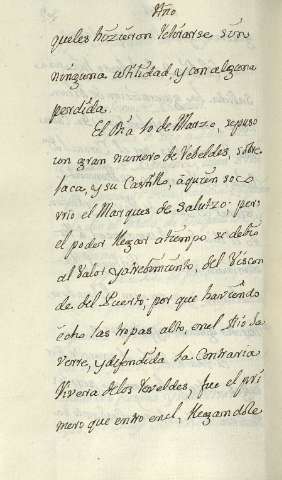 Año
queles hizieron retirarse sin
ninguna utilidad, y con alguna
perdida.
El Dia 10 de Marzo, se puso
un gran numero de Rebeldes, sobre
Jaca, y su Castillo, á quien soco
rrió el Marques de Saluzo; pero
el poder llegar atiempo se debió
al Valor y atrebimiento, del Viscon
de del Puerto; por que haviendo
echo las tropas alto, enel Rio Ja
verre, y defendida la Contraria
Rivera delos Reveldes, fue el pri
mero que entro enel, llegandole